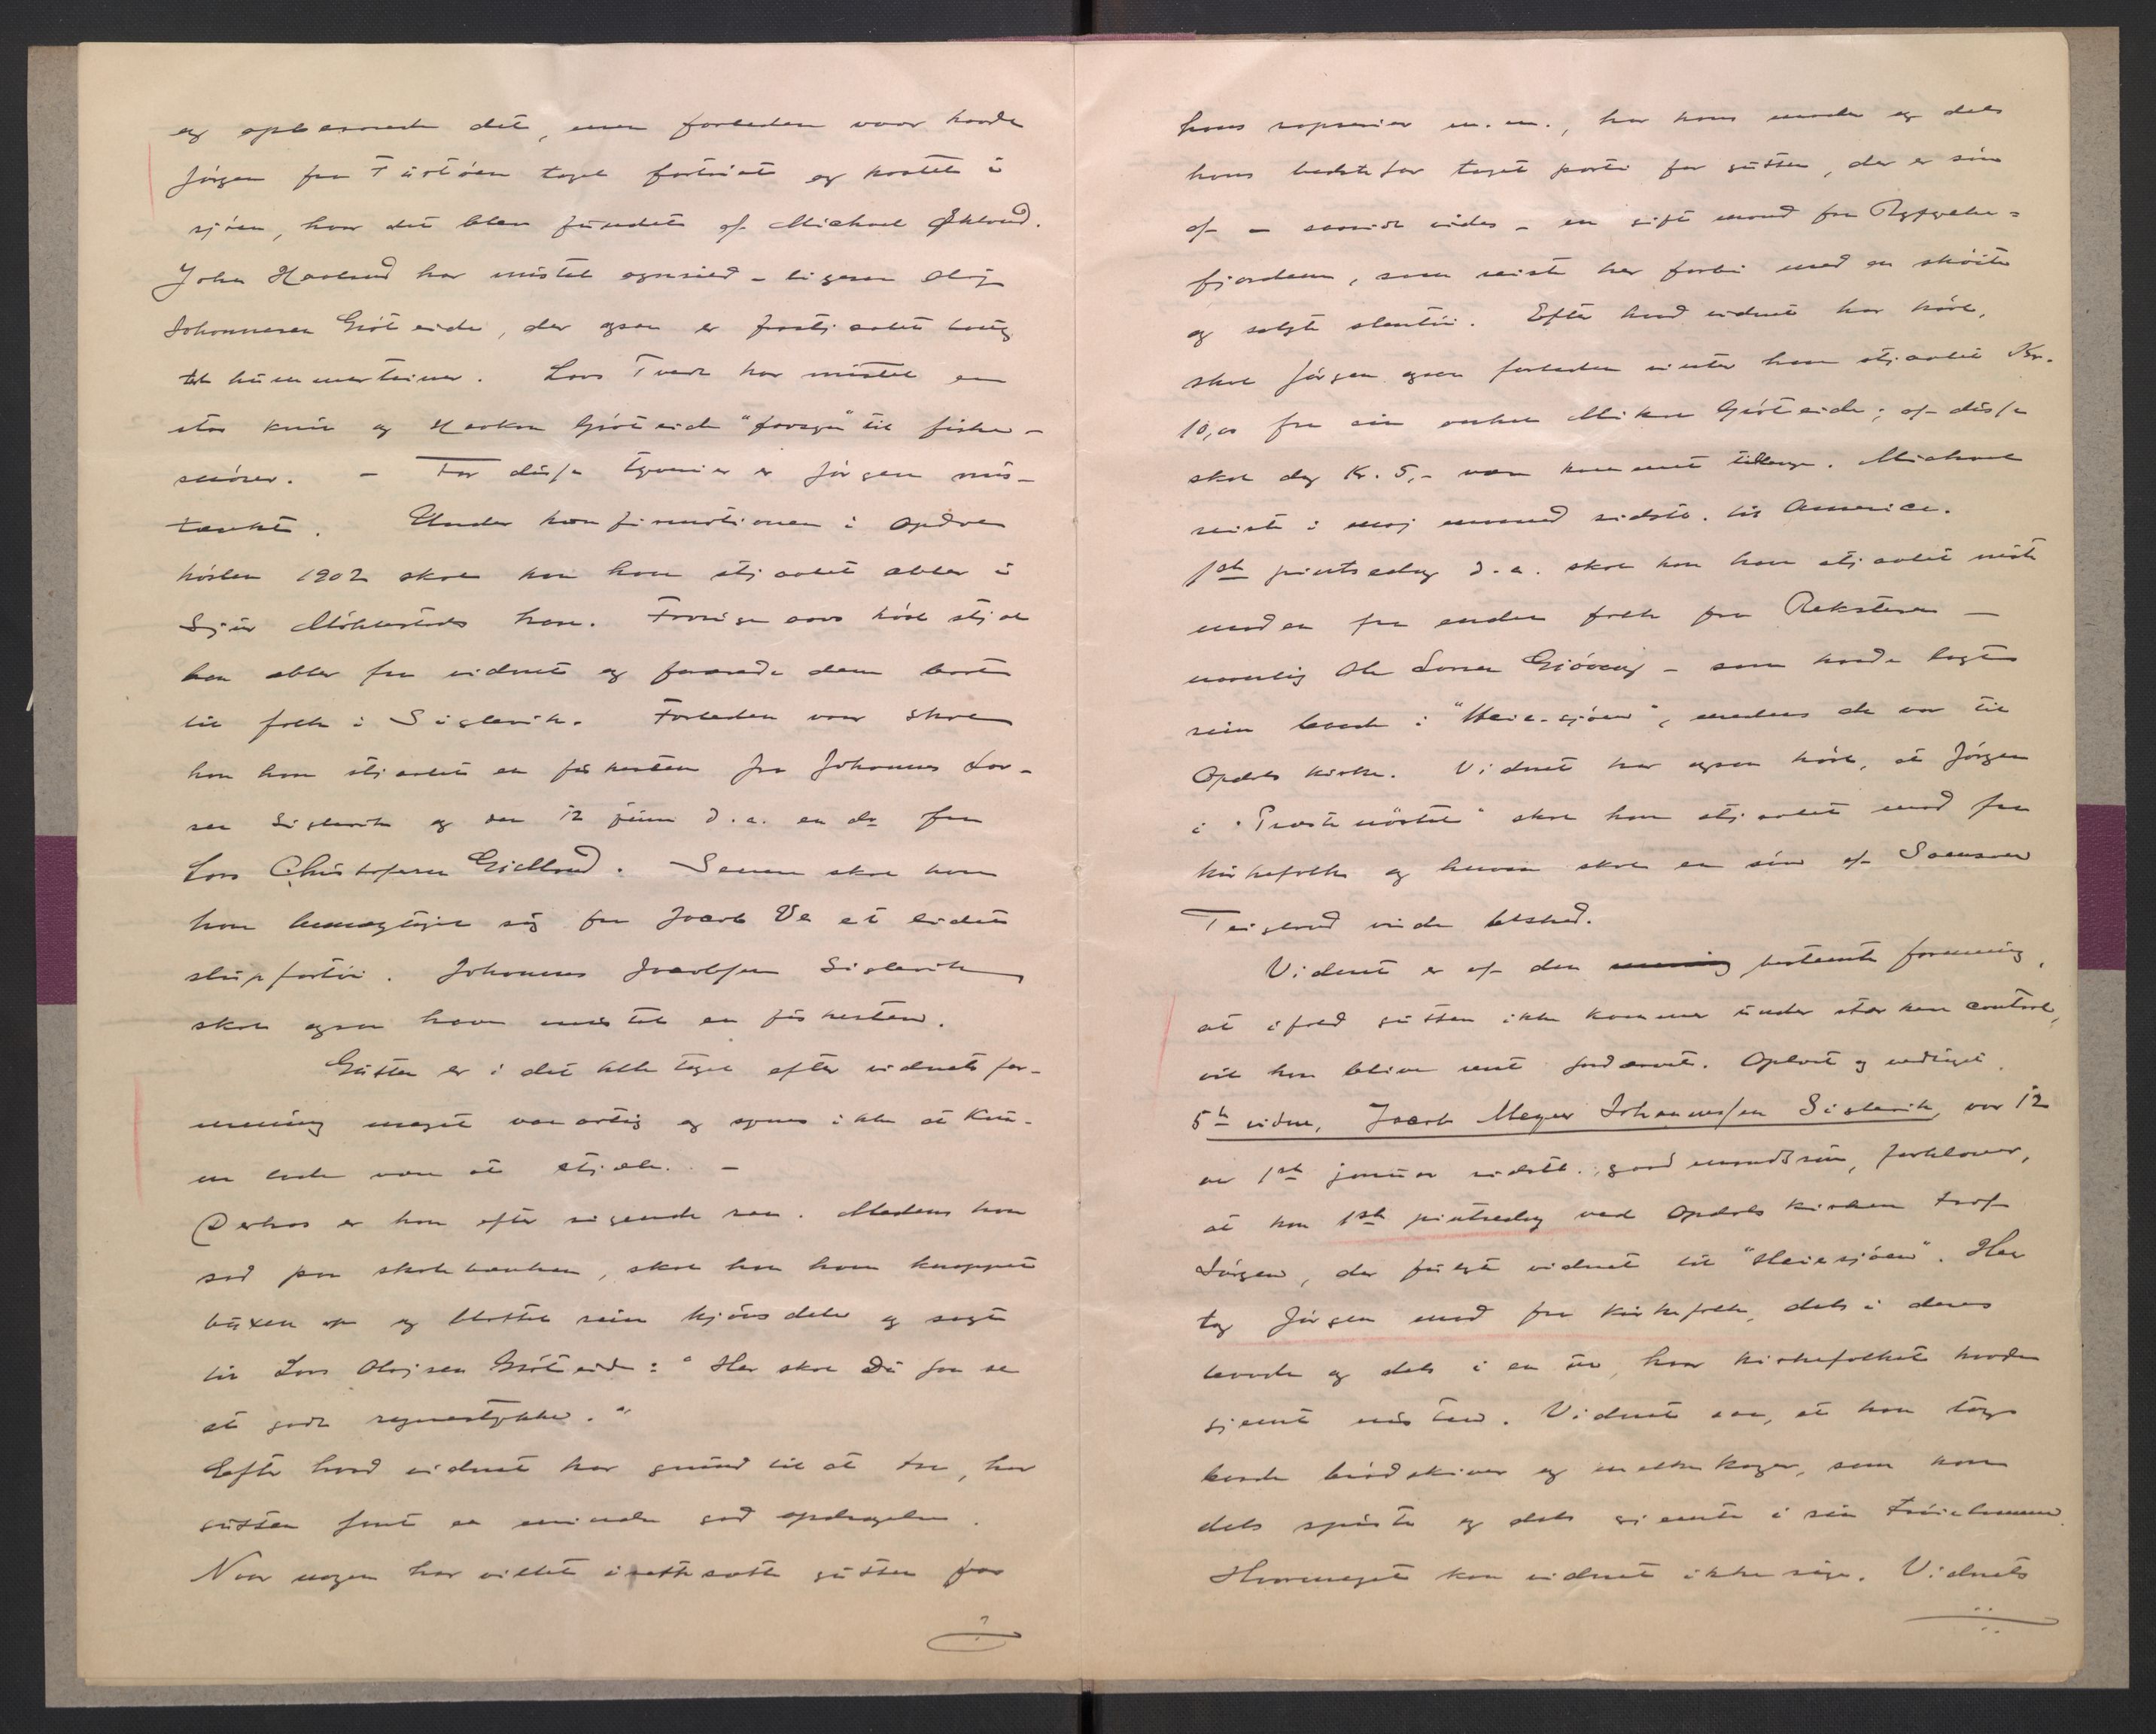 og opbevarede det, men forleden vaar havde
Jørgen fra Tustøen taget fartøiet og kastet i
sjøen, hvor det blev fundet af Michael Økland.
John Havland har mistet agnsild - ligesaa Oluf
Johannesen Grøteide, der ogsaa er frastjaalet
hummerteiner. Lars Tvedt har mistet en
stor kniv og Haakon Grøteide "forsyn" til fiske-
snører. - For disse tyverier er Jørgen mis-
tænkt. Under konfirmationen i Opdal
høsten 1902 skal han have stjaalet æbler i
Sjur Møklestads have. Forrige aars høst stjal
han æbler fra vidnet og forærede dem bort
til folk i Siglevik. Forleden vaar skal
han have stjaalet en fiskesten fra Johannes Lar-
sen Siglevik og den 12 juni d.a. en do fra
Lars Christofersen Gjelland. Samme skal han
have bemægtiget sig fra Jacob Ve et lidet
slupfartøi. Johannes Jacobsen Siglevik
skal ogsaa have mistet en fiskesten.
Gutten er i det hele taget efter vidnets for-
mening meget vanartig og synes ikke at kun-
ne lade være at stjæle. -
Derhos er han efter sigende raa. Medens han
sad paa skolebænken, skal han have knappet
buxen op og blottet sine kjønsdele og sagt
til Lars Olajsen Grøteide: "Her skal Du faa se
et godt regnestykke."
Efter hvad vidnet har grund til at tro, har
gutten faaet en mindre god opdragelse.
Naar nogen har villet irettesætte gutten for
hans raperier m.m., har hans moder og dels
hans bedstefar taget parti for gutten, der er søn
af - saavidt vides - en gift mand fra Ryfylke-
fjordene, som reiste her forbi med en skøite
og solgte stentøi. Efter hvad vidnet har hørt,
skal Jørgen ogsaa forleden vinter have stjaalet Kr.
10,00 fra sin onkel Mikal Grøteide; af disse
skal dog Kr. 5,- være kommet tilbage. Michael
reiste i maj maaned sidstl. til America.
1ste pintsedag d.a. skal han have stjaalet niste
maden fra endel folk fra Reksteren -
navnlig Ole Larsen Gjøvaag - som havde lagt
sin baad i "Heiesjøen", medens de var til
Opdals kirke. Vidnet har ogsaa hørt, at Jørgen
i "Prestenøstet" skal have stjaalet mad fra
kirkefolk og herom skal en søn af Samson
Teigland vide besked.
Vidnet er af den mening bestemte formening,
at ifald gutten ikke kommer under stærkere control,
vil han blive rent fordærvet. Oplæst og vedtaget.
5te vidne, Jacob Meyer Johannessen Siglevik, var 12
aar 1ste januar sidstl., gaardmandssøn, forklarer,
at han 1ste pintsedag ved Opdals kirken traf
Jørgen, der fulgte vidnet til "Heiesjøen". Her
tog Jørgen mad fra kirkefolk, dels i deres
baade og dels i en ur, hvor kirkefolket havde
gjemt nisten. Vidnet saa, at han tog
baade brødskiver og melkekager, som han
dels spiste og dels gjemte i sin trøielomme.
Hvormeget kan vidnet ikke sige. Vidnets